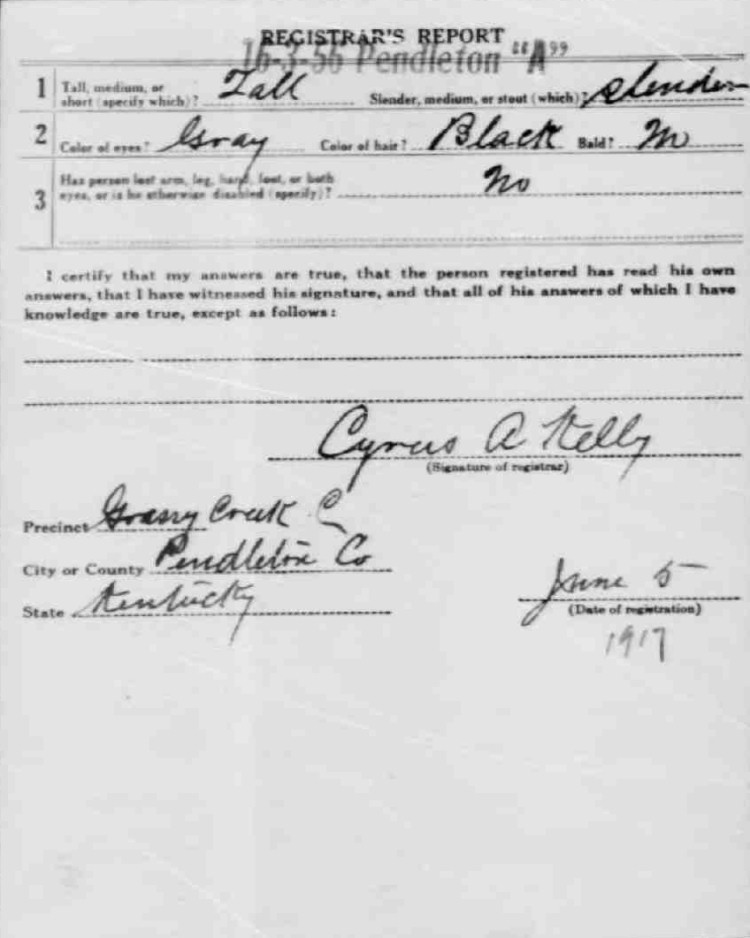 REGISTRAR'S REPORT
16-3-56 Pendleton "A"
1 Tall, medium, or short (specify which)? Tall Slender, medium, or stout (which)? Slender
2 Color of eyes? Gray Color of hair? Black Bald? No
3 Has person lost arm, leg, hand, foot, or both
eyes, or is he otherwise disabled (specify)? No
I certify that my answers are true, that the person registered has read his own
answers, that I have witnessed his signature, and that all of his answers of which I have
knowledge are true, except as follows:
Cyrus A Kelly
(Signature of registrar)
Precinct Grassy Creek C
City or County Pendleton Co
State Kentucky
June 5
(Date of registration)
1917